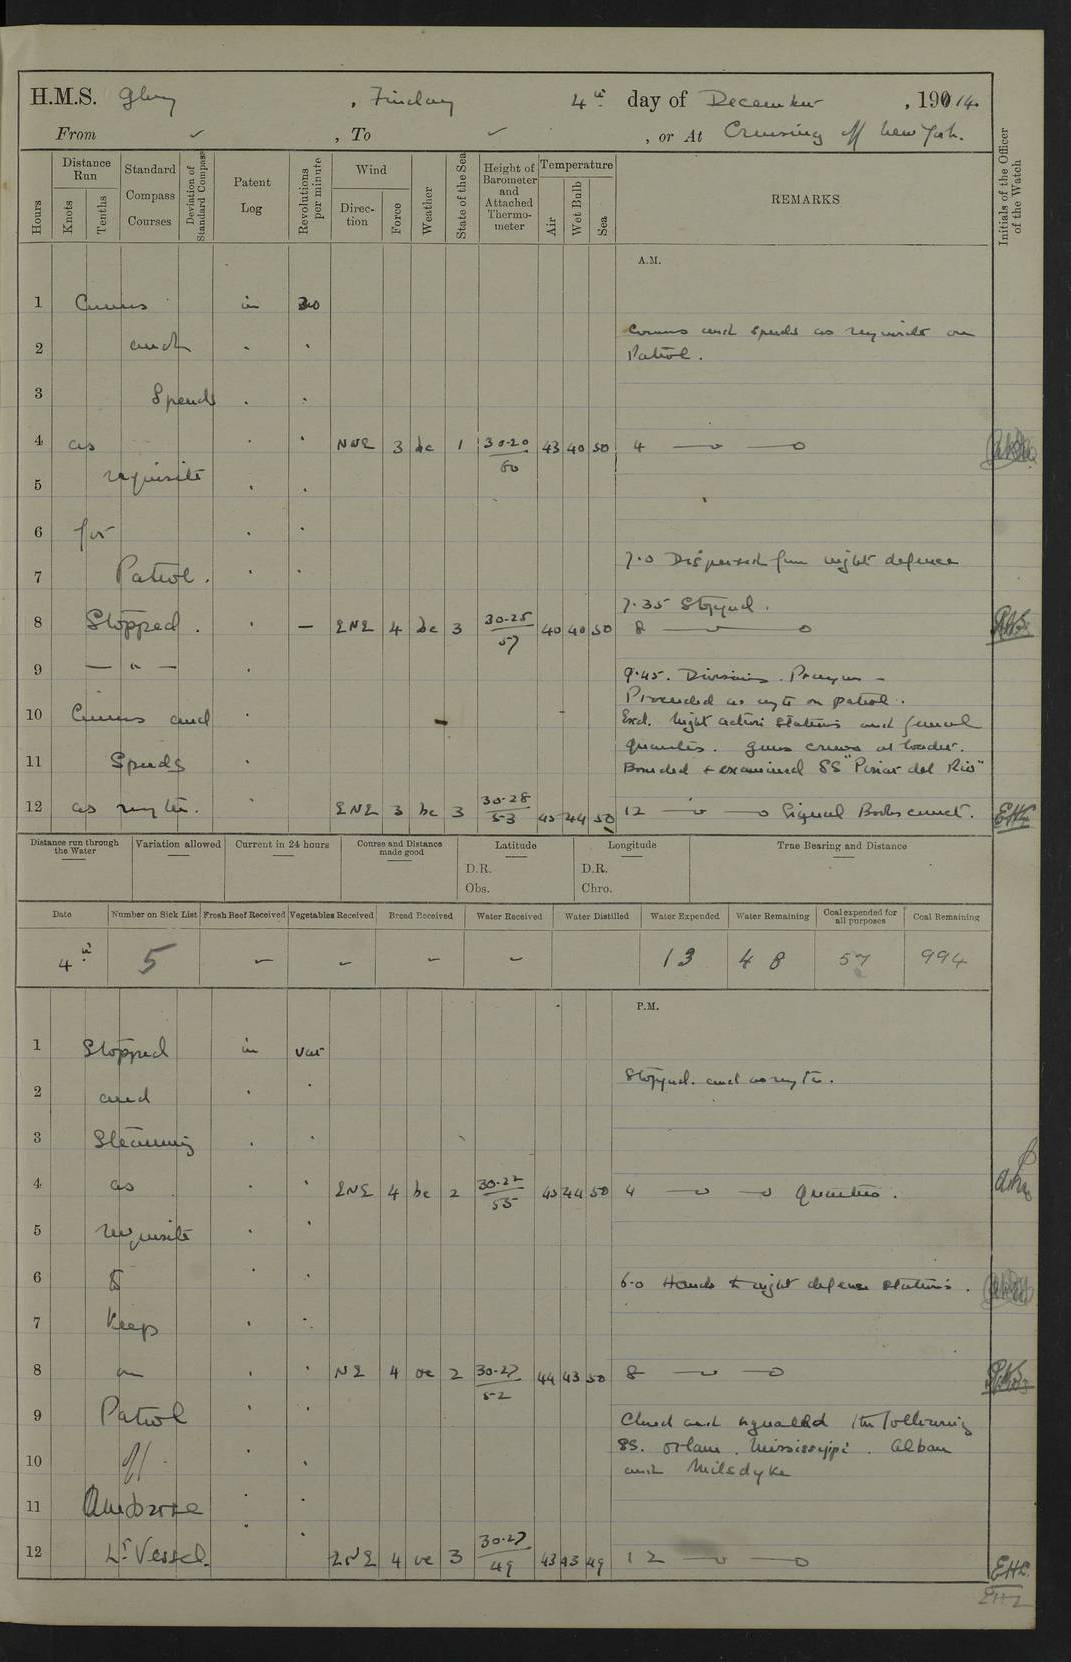 H.M.S. Glory, Friday 4th day of December, 19014.
From ✓, To ✓, or At Cruising off New York.
Hours
Distance Run
Knots
Tenths
Standard Compass Courses
Deviation of Standard Compass
Patent Log
Revolutions per minute
Wind
Direction
Force
Weather
State of the Sea
Height of Barometer and Attached Thermometer
Temperature
Air
Wet Bulb
Sea
REMARKS
Initials of the Officer of the Watch
A.M.
1 Courses in
2 and
Courses and speeds as requisite on
Patrol.
3 Speeds
4 as NNE 3 bc 1 30·20 60 43 40 50 4
5 requisite
6 for
7 Patrol.
7·0 Dispersed from night defence
7·35 Stopped.
8 Stopped. — ENE 4 bc 3 30·25 57 40 40 50 8
9 — " —
9·45. Divisions. Prayers –
Proceeded as reqte on patrol.
10 Courses and
Exd. night action stations and general
quarters. Guns crews at loader.
11 Speeds
Boarded & examined SS "Pinar del Rio"
12 as reqte. ENE 3 bc 3 30·28 53 45 44 50 12 Signal Books correct. EHL
Distance run through the Water
Variation allowed
Current in 24 hours
Course and Distance made good
Latitude
D.R.
Obs.
Longitude
D.R.
Chro.
True Bearing and Distance
Date
Number on Sick List
Fresh Beef Received
Vegetables Received
Bread Received
Water Received
Water Distilled
Water Expended
Water Remaining
Coal expended for all purposes
Coal Remaining
4th 5 – – – – 13 48 57 994
P.M.
1 Stopped in var
2 and
Stopped and as reqte.
3 Steaming
4 as ENE 4 bc 2 30·22 55 45 44 50 4 Quarters.
5 requisite
6 to 6·0 Hands to night defence stations.
7 Keep
8 on NE 4 oc 2 30·27 52 44 43 50 8
9 Patrol
Closed and signalled the following
10 off
SS. Orlam. Mississippi. Alban
and Milsdyke
11 Ambrose
12 Lt Vessel. ENE 4 oc 3 30·27 49 43 43 49 12 EHL
EHL